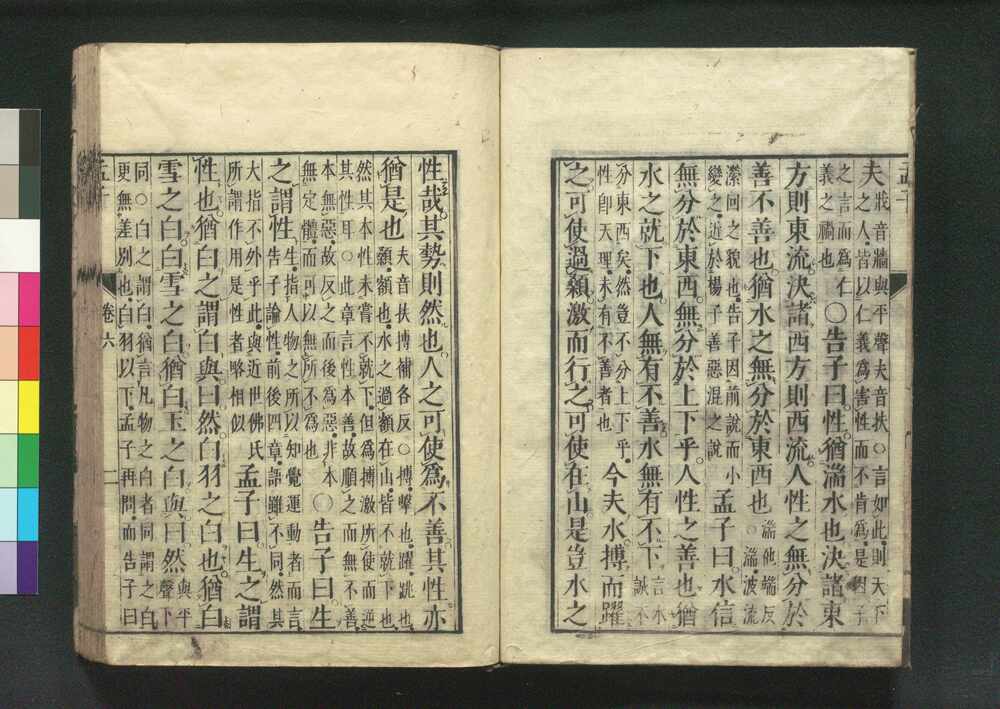 孟子
夫戕音牆與平聲夫音扶○言如此則天下
之人皆以仁義爲害性而不肯爲是因子
之言而爲仁
義之禍也○告子曰性猶湍水也決諸東
方則東流決諸西方則西流人性之無分於
善不善也猶水之無分於東西也湍他端反
○湍波流
瀠回之貌也告子因前說而小
變之近於楊子善惡混之說孟子曰水信
無分於東西無分於上下乎人性之善也猶
水之就下也人無有不善水無有不下言水
誠不
分東西矣然豈不分上下乎
性即天理未有不善者也今夫水搏而躍
之可使過顙激而行之可使在山是豈水之
性哉其勢則然也人之可使爲不善其性亦
猶是也夫音扶搏補各反○搏擊也躍跳也
顙額也水之過額在山皆不就下也
然其本性未嘗不就下但爲搏激所使而逆
其性耳○此章言性本善故順之而無不善
本無惡故反之而後爲惡非本
無定體而可以無所不爲也○告子曰生
之謂性生指人物之所以知覺運動者而言
告子論性前後四章語雖不同然其
大指不外乎此與近世佛氏
所謂作用是性者略相似孟子曰生之謂
性也猶白之謂白與曰然白羽之白也猶白
雪之白白雪之白猶白玉之白與曰然與平
聲下
同○白之謂白猶言凡物之白者同謂之白
更無差別也白羽以下孟子再問而告子曰
孟子 卷六 二